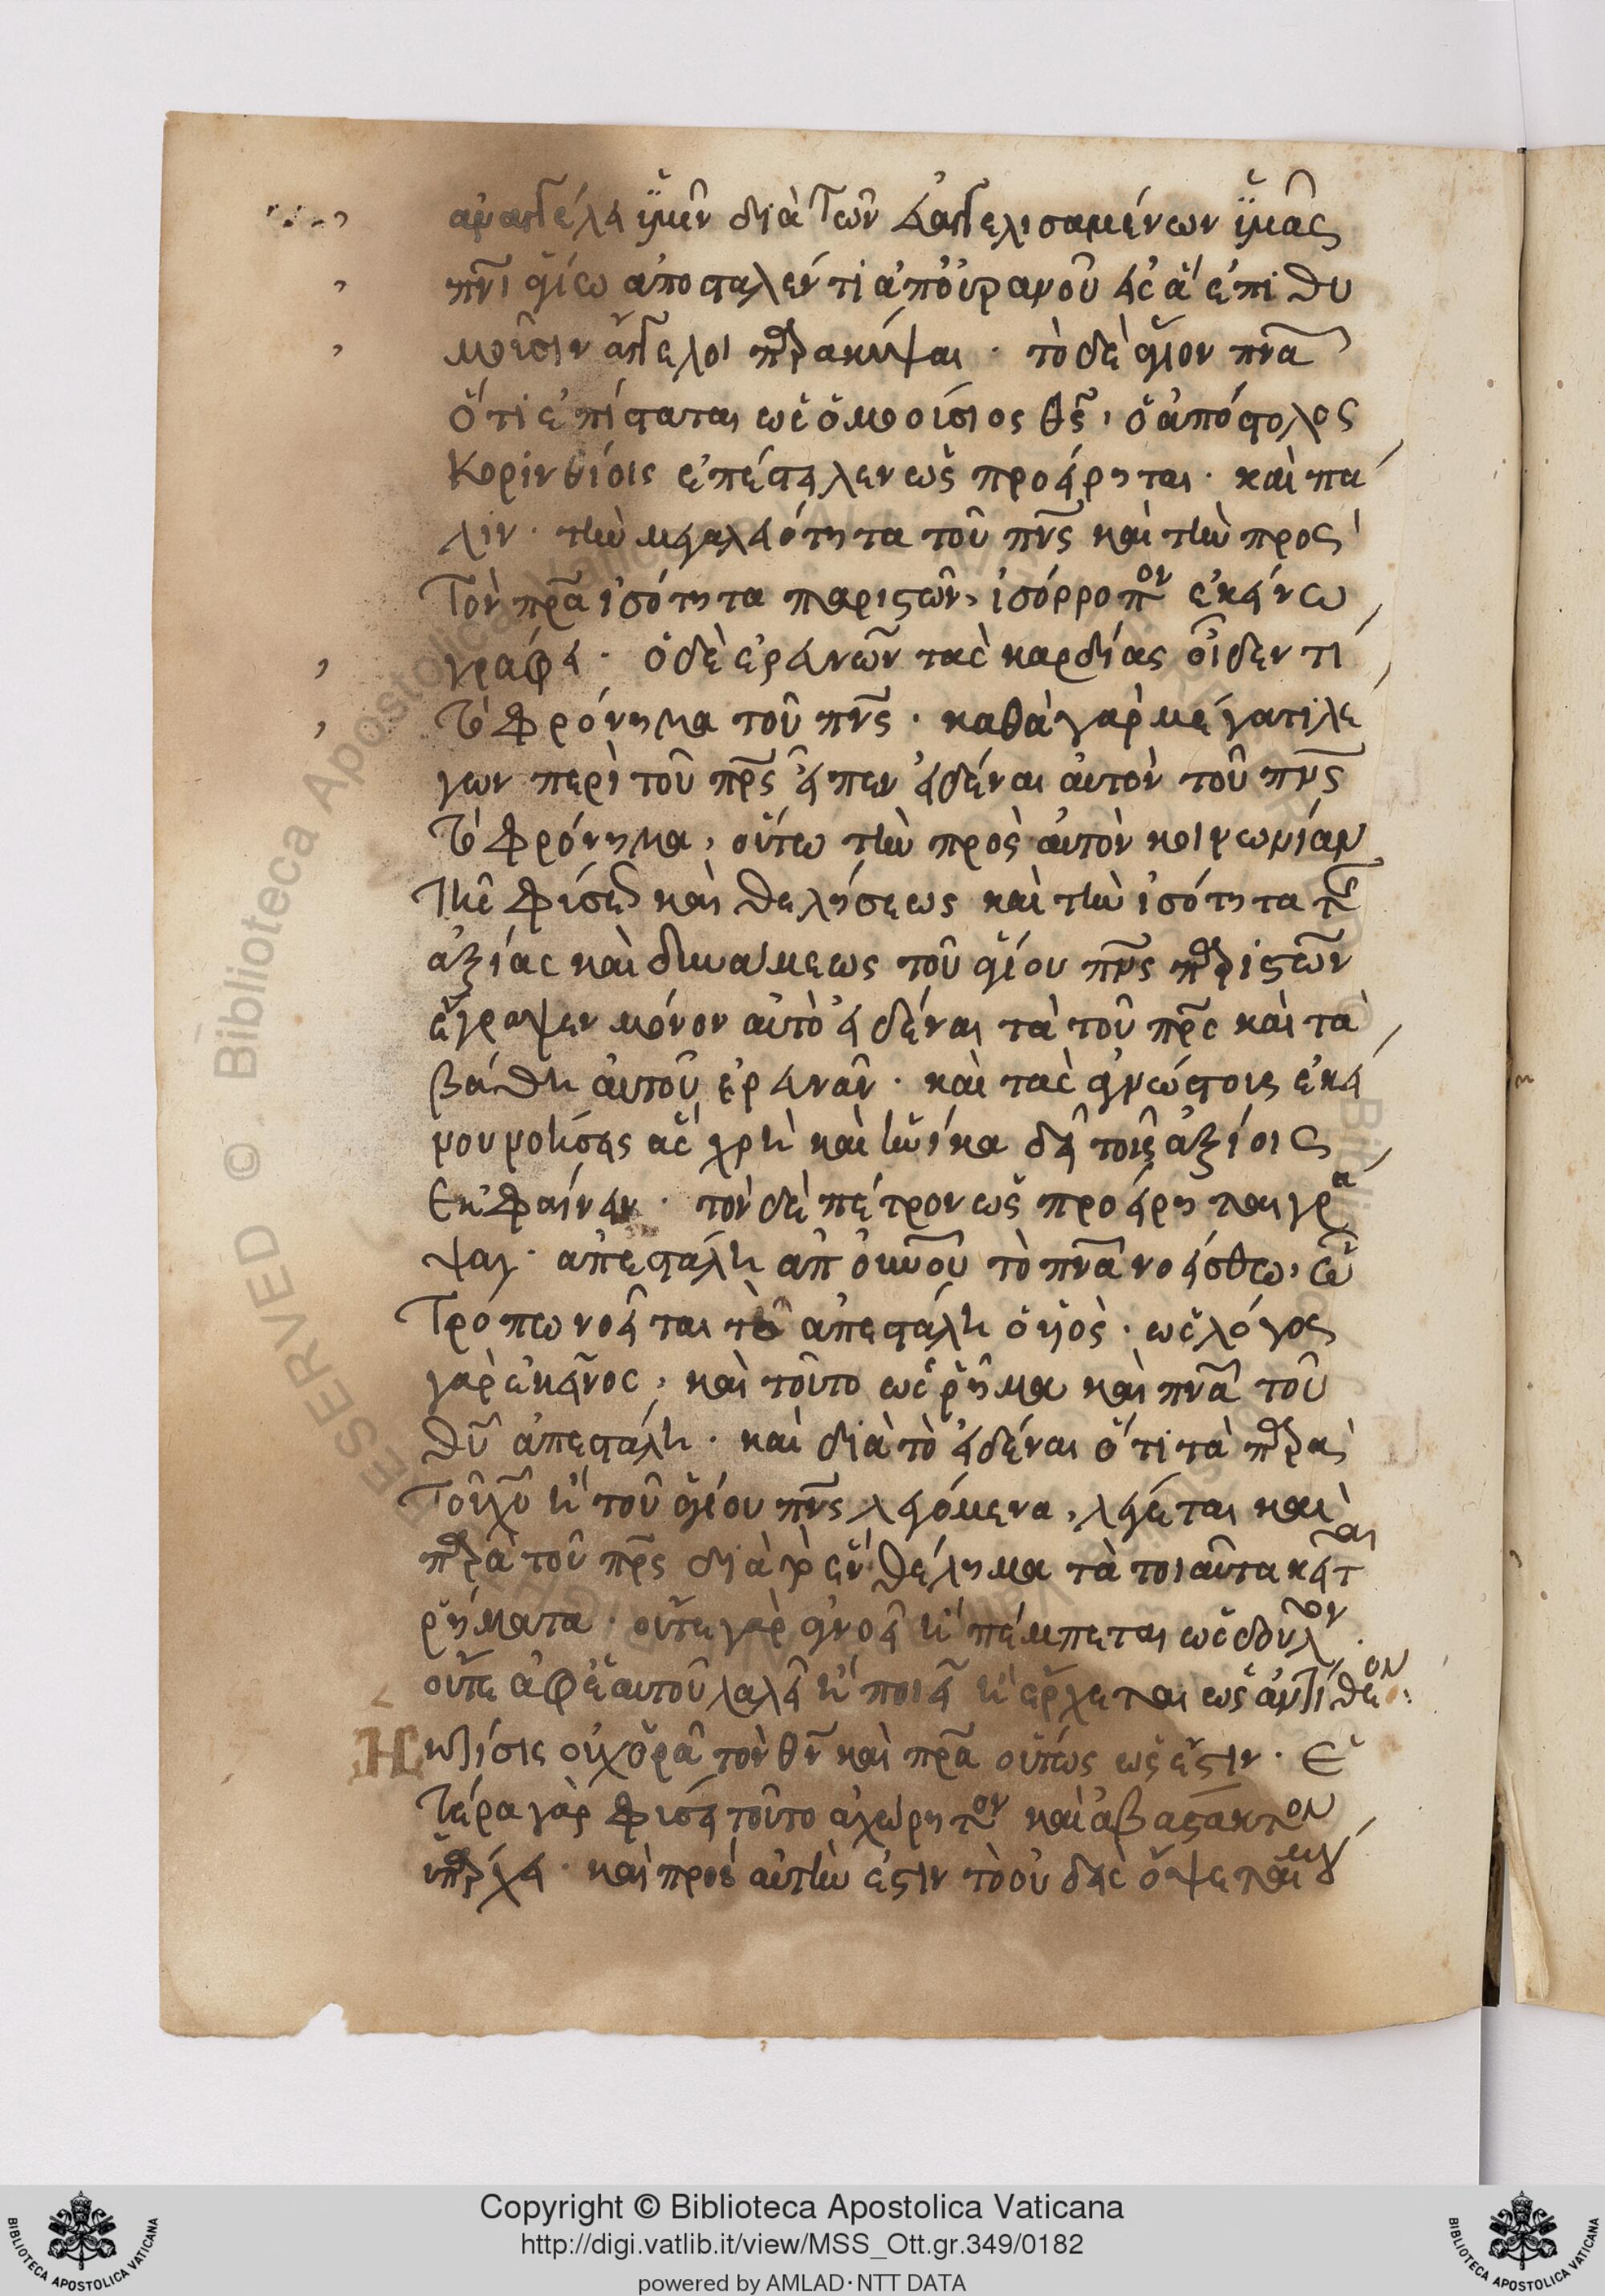 ἀναγγέλει ὑμῖν διὰ τῶν εὐαγγελισαμένων ὑμᾶς
πνι ἁγίω ἀποσταλέντι ἀπ οὐρανοῦ εἰς ἃ ἐπιθυ
μοῦσιν ἄγγελοι παρακύψαι · τὸ δὲ ἅγιον πνα
ὅτι ἐπίσταται ὡς ὁμοούσιος θς, ὁ ἀπόστολος
κορινθίοις ἐπέστειλεν ὡς προείρηται · καὶ πά
λιν · τὴν μεγαλειότητα τοῦ πνς καὶ τὴν πρὸς
τὸν πρα ἰσότητα παριστῶν, ἰσόρροπον ἐκείνω
γράφει · ὁ δὲ ἐρευνῶν τὰς καρδίας οἶδεν τί
τὸ φρόνημα τοῦ πνς · καθὰ γὰρ μέγα τι λέ
γων περὶ τοῦ πρς εἶπεν εἰδέναι αὐτὸν τοῦ πνς
τὸ φρόνημα, οὕτω τὴν πρὸς αὐτὸν κοινωνίαν
τῆς φύσεως καὶ θελήσεως καὶ τὴν ἰσότητα τῆς
ἀξίας καὶ δυνάμεως τοῦ ἁγίου πνς παριστῶν
ἔγραψεν μόνον αὐτὸ εἰδέναι τὰ τοῦ πρς καὶ τὰ
βάθη αὐτοῦ ἐρευνᾶν · καὶ τὰς ἀγνώστους ἐκεί
νου νοήσεις ἃς χρὴ καὶ ἡνίκα δεῖ τοῖς ἀξίοις
ἐκφαίνειν · τὸν δὲ πέτρον ὡς προείρηται γρά
ψαι · ἀπεστάλη ἀπ οὐνοῦ τὸ πνα νοείσθω, ὧ
τρόπω νοεῖται τὸ ἀπεστάλη ὁ υἱὸς · ὡς λόγος
γὰρ ἐκεῖνος, καὶ τοῦτο ὡς ῥῆμα καὶ πνα τοῦ
θυ ἀπεστάλη · καὶ διὰ τὸ εἰδέναι ὅτι τὰ παρὰ
τοῦ χυ ἢ τοῦ ἁγίου πνς λεγόμενα, λέγεται καὶ
παρὰ τοῦ πρς διὰ τὸ ἓν θέλημα τὰ τοιαῦτα κεῖται
ῥήματα · οὔτε γὰρ ἀγνοεῖ ἢ πέμπεται ὡς δοῦλον ·
οὔτε ἀφ ἑαυτοῦ λαλεῖ ἢ ποιεῖ ἢ ἔρχεται ὡς ἀντίθεον :
Η κτίσις οὐχ ὁρᾶ τὸν θν καὶ πρα οὕτως ὡς ἔστιν · ἑ
τέρα γὰρ φύσει τοῦτο ἀχώρητον καὶ ἀβάστακτον
ὑπάρχει · καὶ πρὸς αὐτὴν ἐστιν τὸ οὐδεὶς ὄψεται
Copyright © Biblioteca Apostolica Vaticana
http://digi.vatlib.it/view/MSS_Ott.gr.349/0182
powered by AMLAD·NTT DATA